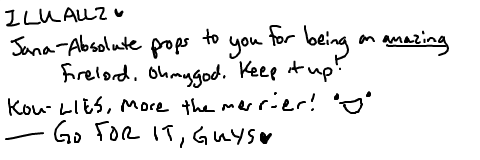 ILUALLZ ♥
Jana-Absolute props to you for being an amazing
Firelord. Ohmygod. Keep it up!
Kou-LIES, More the merrier!
GO FOR IT, GUYS ♥